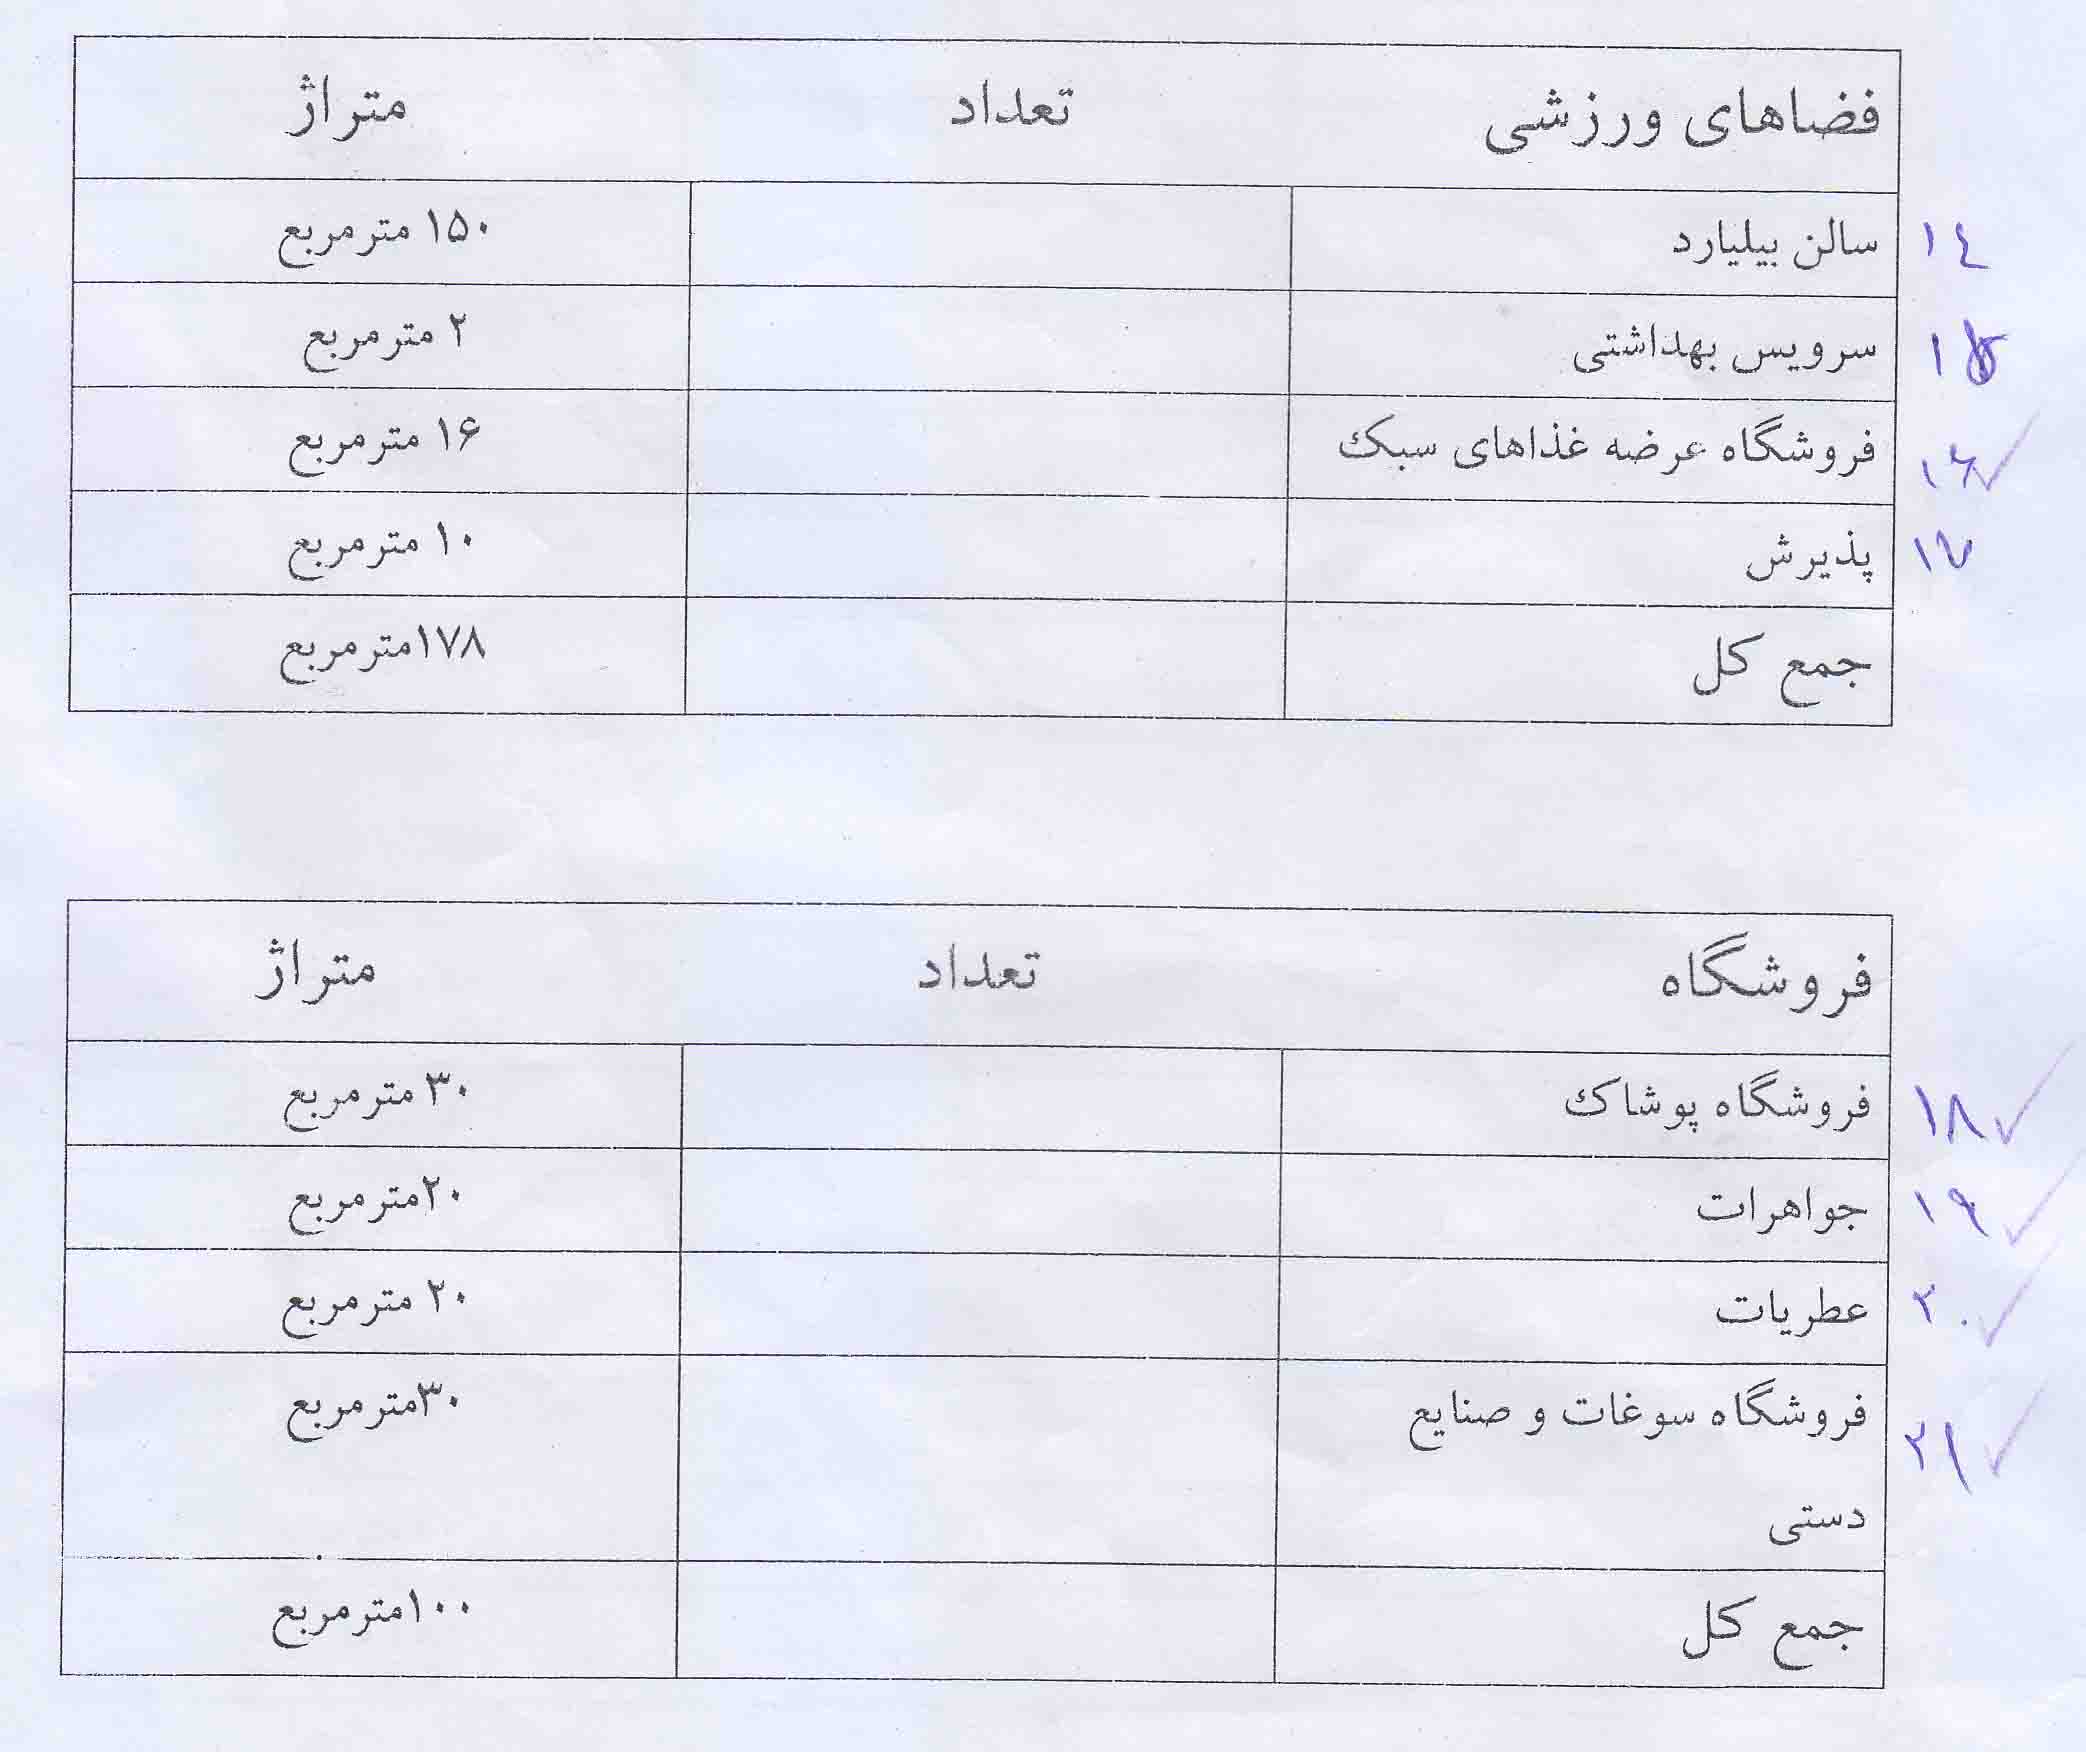 فضاهای ورزشی تعداد متراژ
۱۴ سالن بیلیارد ۱۵۰ مترمربع
۱۵ سرویس بهداشتی ۲ مترمربع
۱۶ فروشگاه عرضه غذاهای سبک ۱۶ مترمربع
۱۷ پذیرش ۱۰ مترمربع
جمع کل ۱۷۸مترمربع
فروشگاه تعداد متراژ
۱۸ فروشگاه پوشاک ۳۰ مترمربع
۱۹ جواهرات ۲۰مترمربع
۲۰ عطریات ۲۰ مترمربع
۲۱ فروشگاه سوغات و صنایع ۳۰مترمربع
دستی
جمع کل ۱۰۰مترمربع